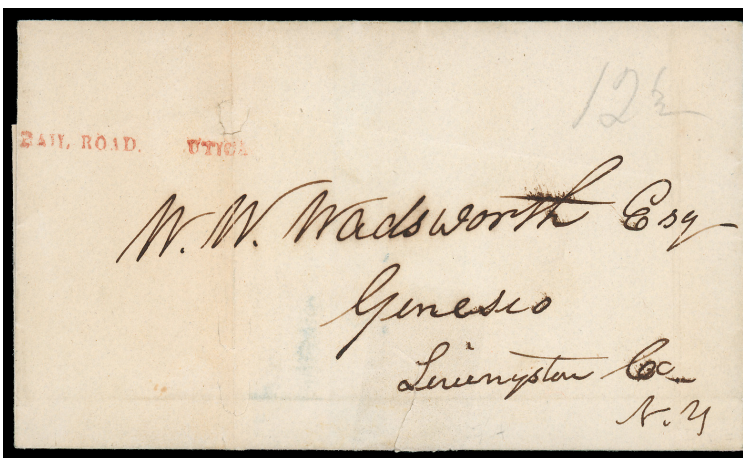 12½
RAIL ROAD. UTICA
W. W. Wadsworth Esq
Geneseo
Livingston Co
N. Y